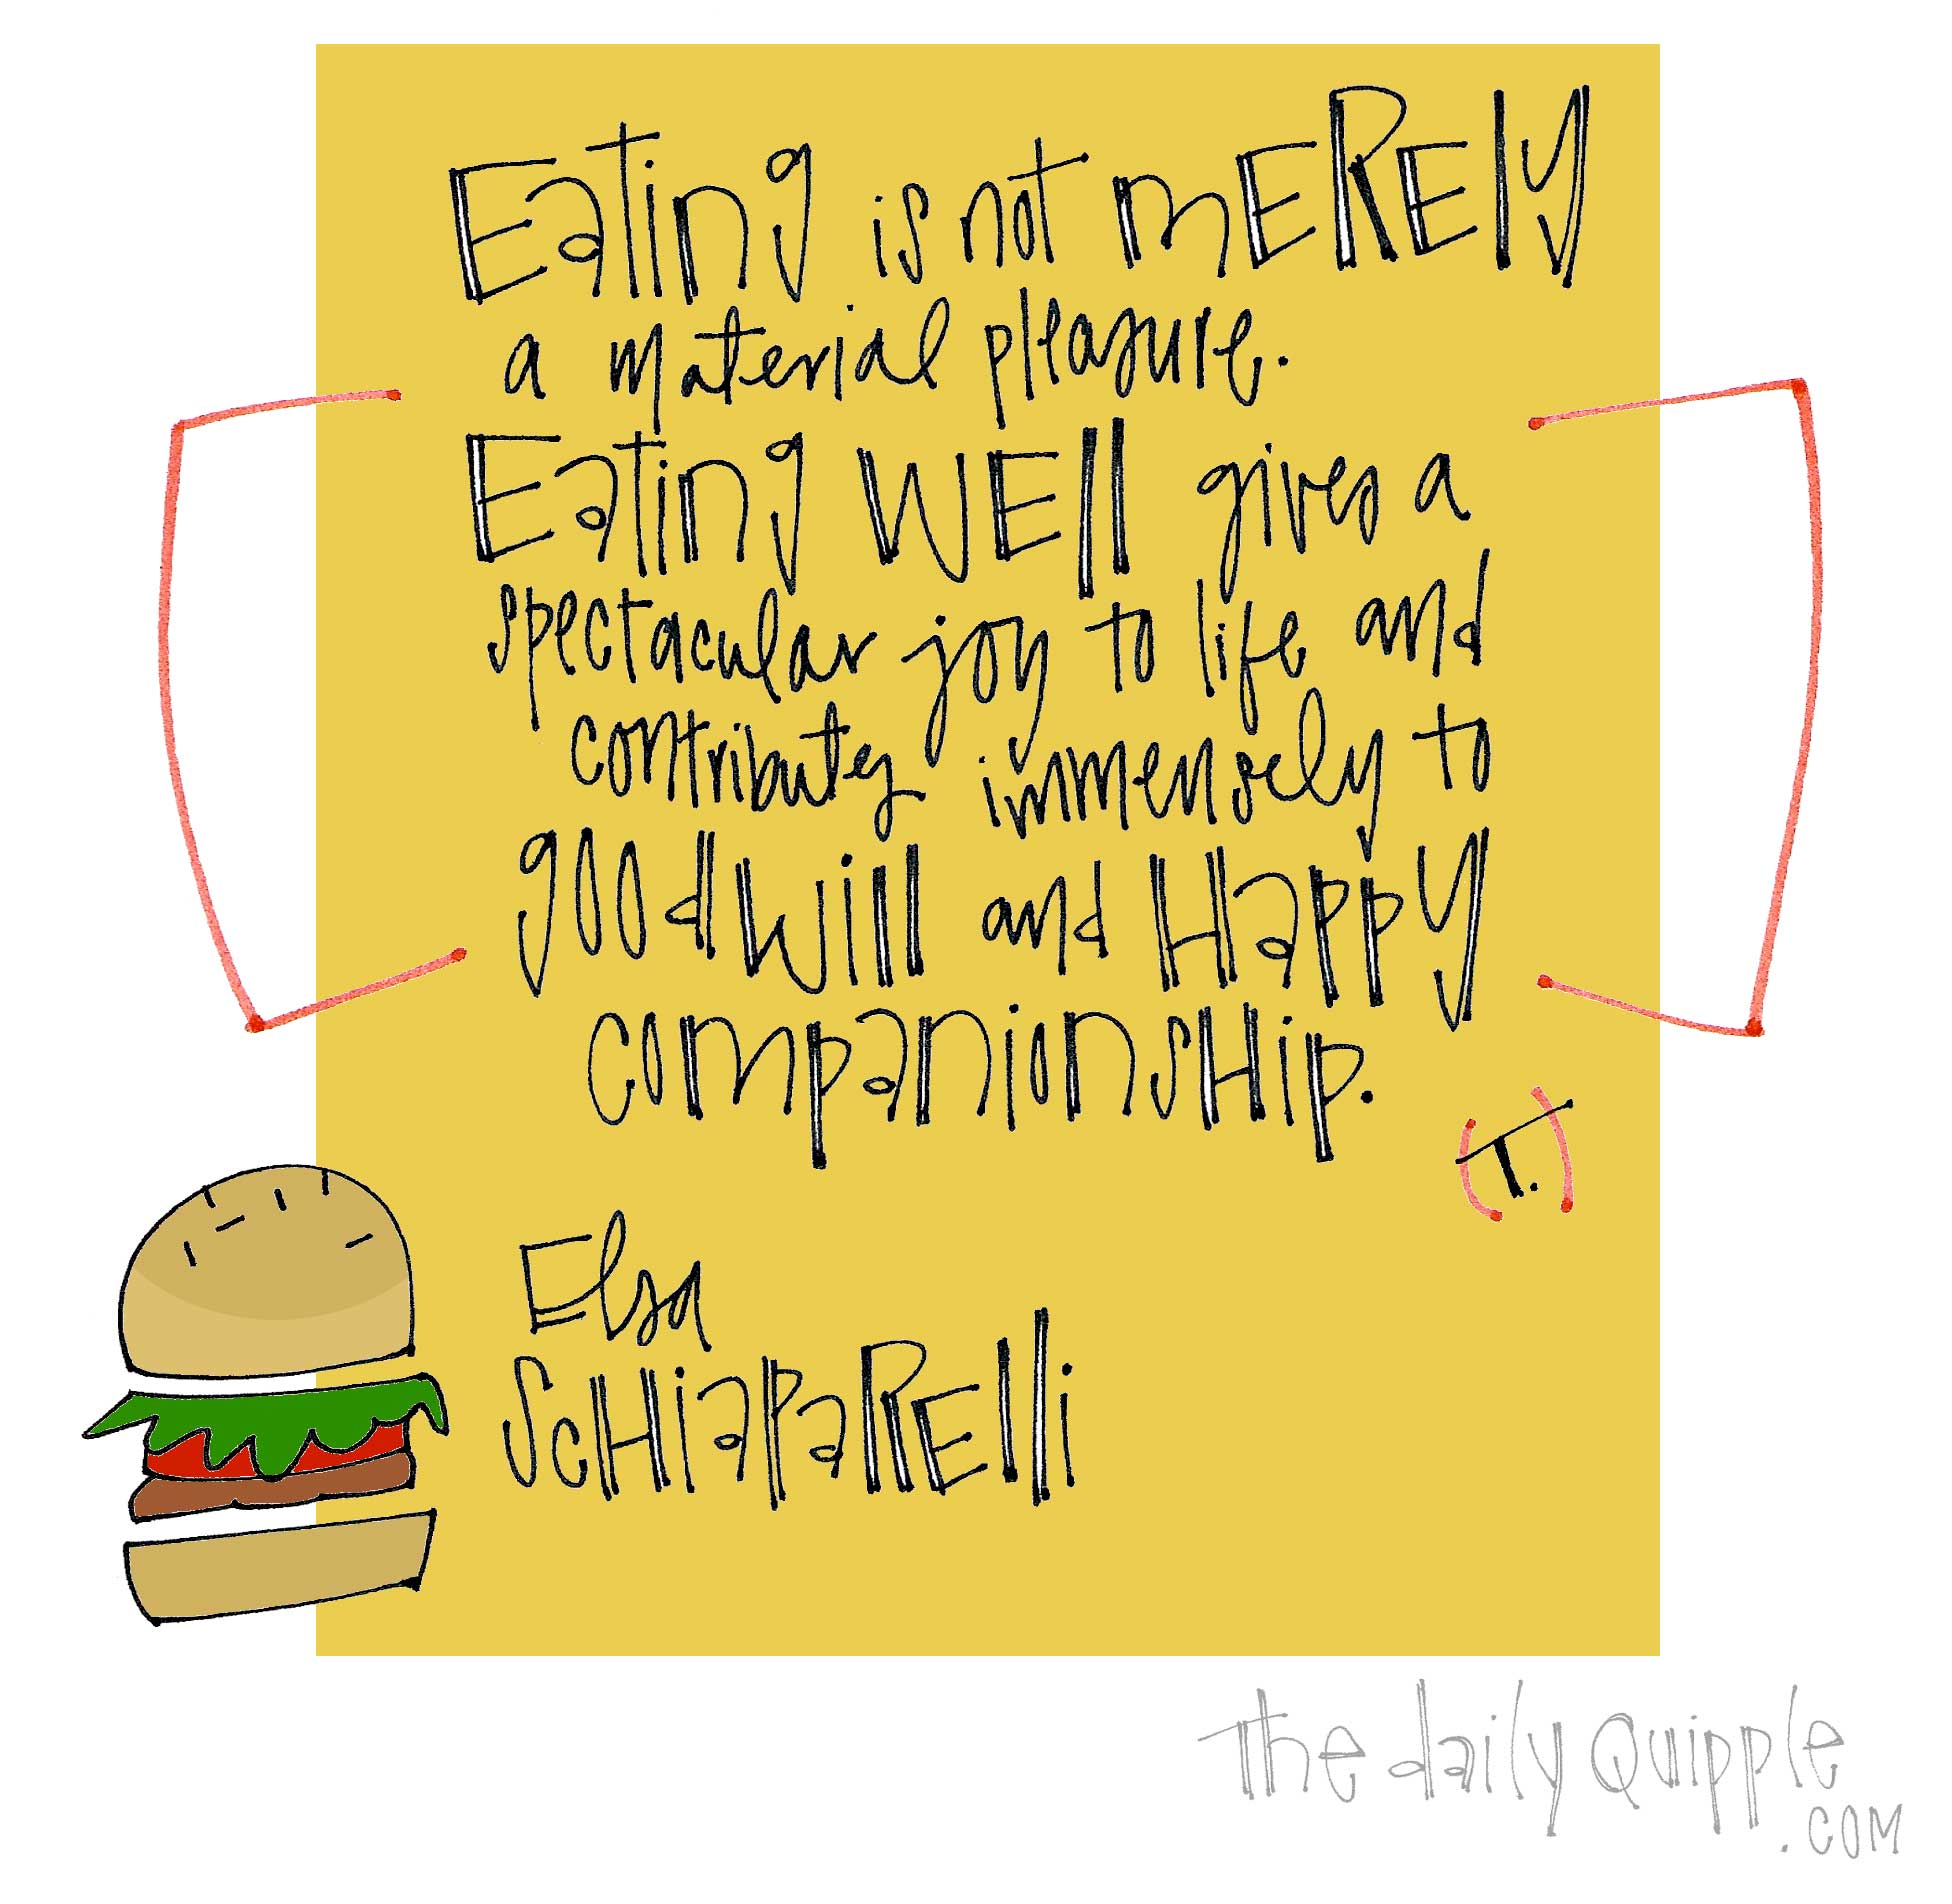 Eating is not mERElY
a material pleasure.
Eating WEll gives a
spectacular joy to life and
contributes immensely to
goodwill and Happy
companionsHip.
(T.)
Elsa
ScHiapaRElli
The daily Quipple
.com